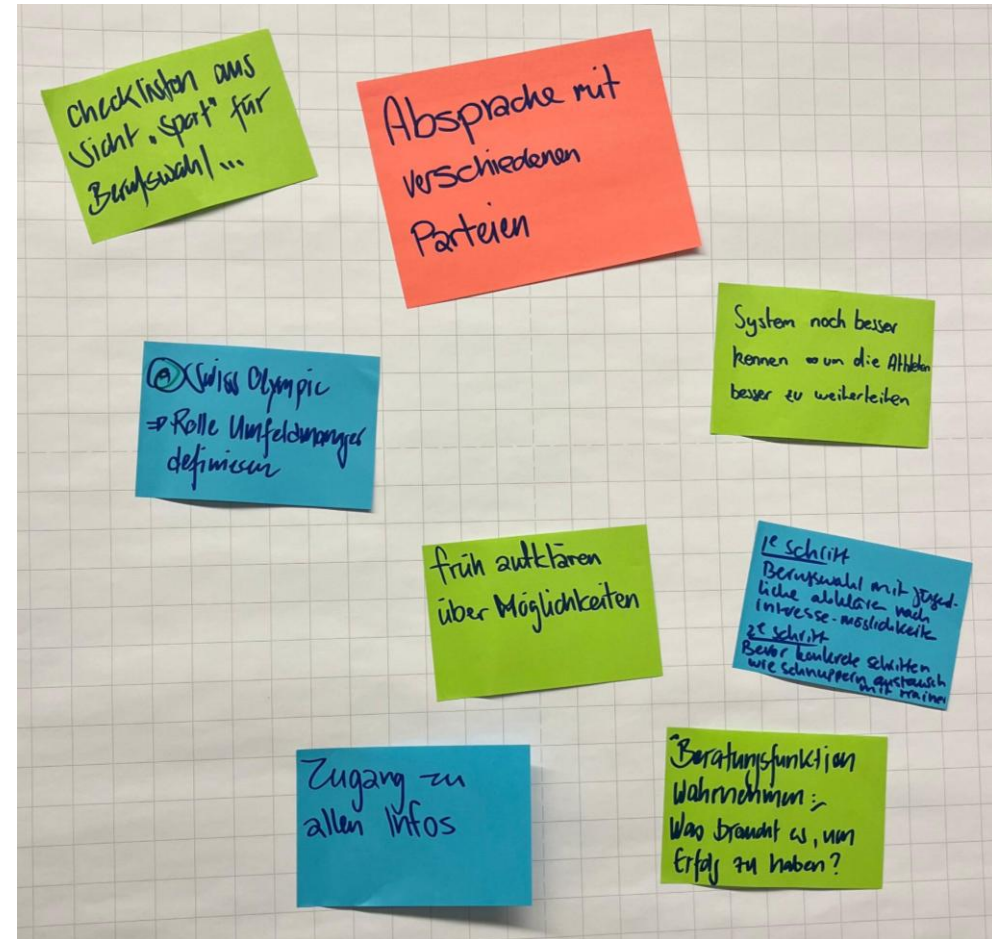 Checklisten aus
Sicht „Sport" für
Berufswahl...
Absprache mit
verschiedenen
Parteien
System noch besser
kennen ⇒ um die Athleten
besser zu weiterleiten
A Swiss Olympic
⇒ Rolle Umfeldmanager
definieren
früh aufklären
über Möglichkeiten
1e Schritt
Berufswahl mit jugend-
liche abklären nach
Interesse-möglichkeite
2e Schritt
Bevor konkrete schritten
wie schnuppern austausch
mit trainer
Zugang zu
allen Infos
Beratungsfunktion
wahrnehmen:
Was braucht es, um
Erfolg zu haben?